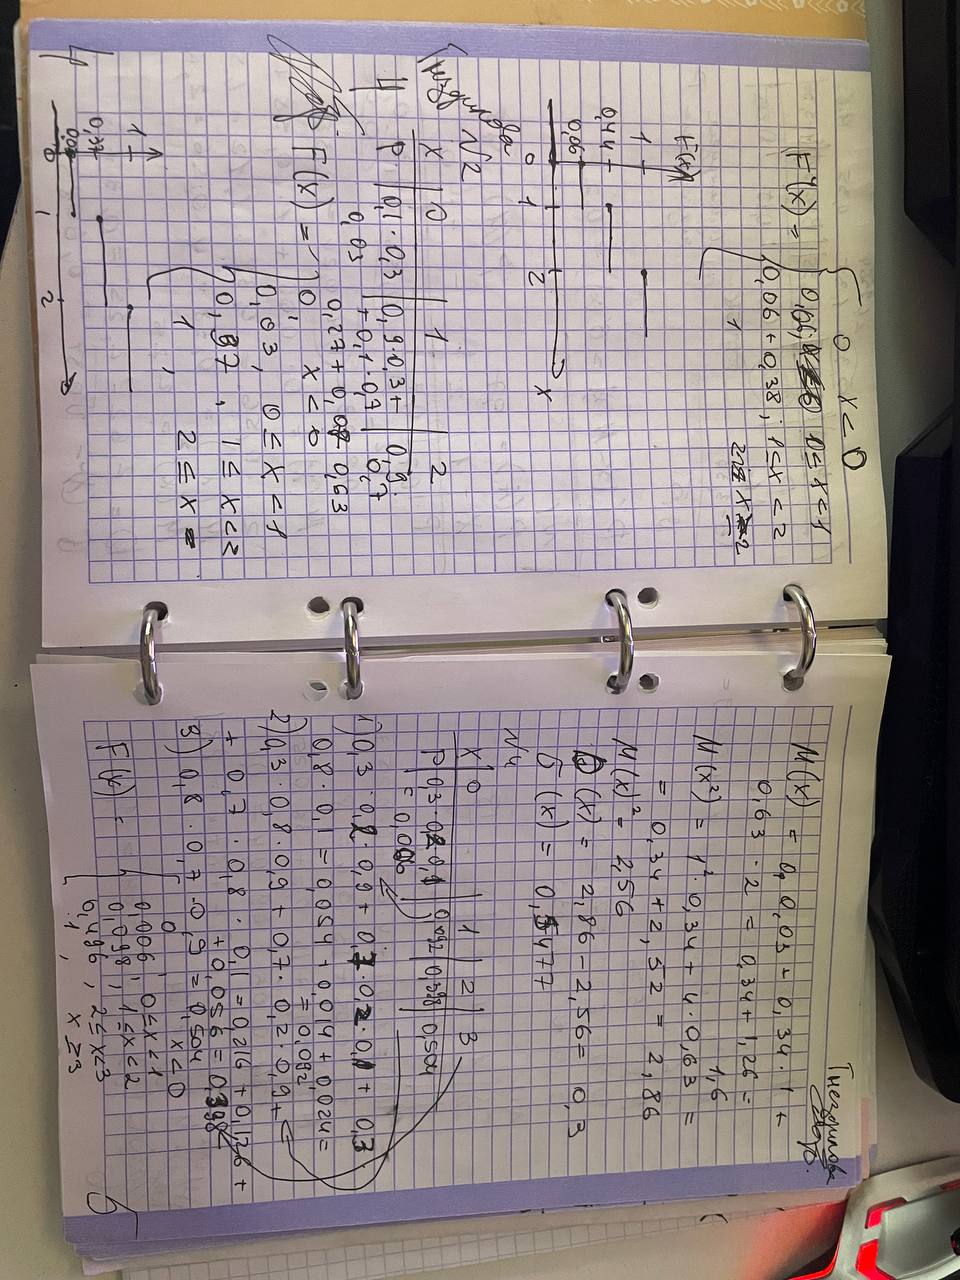 0 x < 0
F(x) = 0,06; 0 ≤ x < 1
0,06 + 0,38; 1 ≤ x < 2
1 x ≥ 2
F(x)
1
0,44
0,06
0 1 2 x
Гнездилова
√2
x | 0 | 1 | 2
4 P | 0,1 · 0,3 | 0,9 · 0,3 + | 0,9 ·
0,03 + 0,1 · 0,7 0,7
0,27 + 0,07 0,63
F(x) = 0, x < 0
0,03, 0 ≤ x < 1
0,37, 1 ≤ x < 2
1, 2 ≤ x
1
0,37
0,03
0 1 2
4
Гнездилова
M(x) = 0, 0,03 + 0,34 · 1 +
0,63 · 2 = 0,34 + 1,26 =
1,6
M(x²) = 1² · 0,34 + 4 · 0,63 =
= 0,34 + 2,52 = 2,86
M(x)² = 2,56
D(x) = 2,86 – 2,56 = 0,3
б(x) = 0,5477
√4
X | 0 | 1 | 2 | 3
P | 0,3 · 0,2 · 0,1 | 0,092 | 0,398 | 0,504
= 0,006
1) 0,3 · 0,2 · 0,9 + 0,7 · 0,2 · 0,1 + 0,3 ·
0,8 · 0,1 = 0,054 + 0,014 + 0,024 =
= 0,092
2) 0,3 · 0,8 · 0,9 + 0,7 · 0,2 · 0,9 +
+ 0,7 · 0,8 · 0,1 = 0,216 + 0,126 +
+ 0,056 = 0,398
3) 0,8 · 0,7 · 0,9 = 0,504
0, x < 0
0,006, 0 ≤ x < 1
F(x) = 0,098, 1 ≤ x < 2
0,496, 2 ≤ x < 3
1, x ≥ 3
5